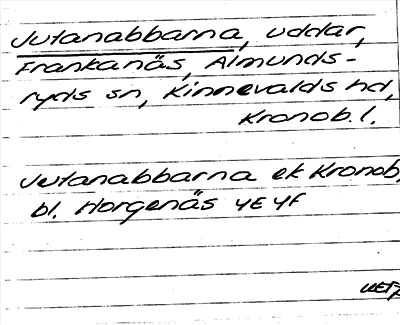 Jutanabbarna, uddar,
Frankanäs, Almunds-
ryds sn, Kinnevalds hd,
Kronob. l.
Jutanabbarna ek Kronob.
bl. Horgenäs 4E 4f